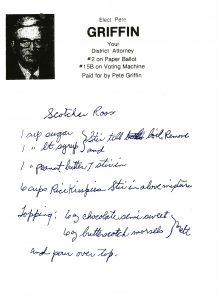 Elect Pete
GRIFFIN
Your
District Attorney
#2 on Paper Ballot
#15B on Voting Machine
Paid for by Pete Griffin
Scotcher Roos
1 cup sugar } Stir till boil, Remove
1 " lt. syrup } and
1 " peanut butter } stir in
6 cups Rice Krispies Stir in above mixture
Topping: 6 oz chocolate semi sweet
6 oz butterscotch morsels } melt
and pour over top.